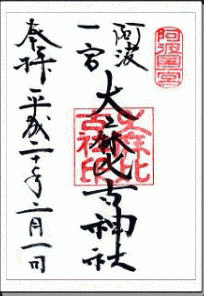 阿波
一宮
大麻比古神社
大麻比
古神
社印
奉拝
平成二十年二月一日